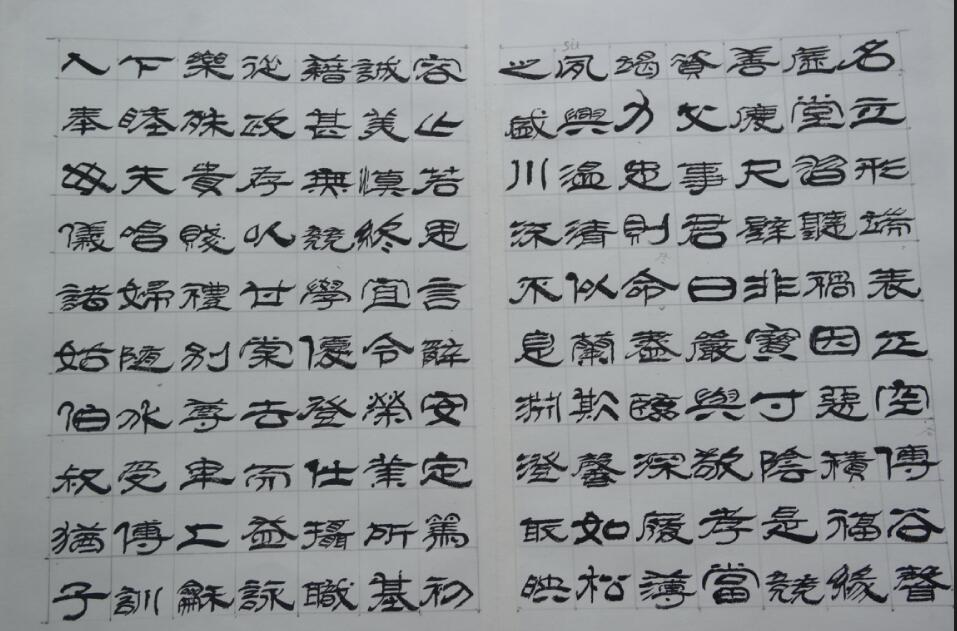 名立形端表正空傳谷聲
虛堂習聽禍因惡積福緣
善慶尺璧非寶寸陰是競
資父事君曰嚴與敬孝當
竭力忠則命盡臨深履薄
夙興溫清似蘭斯馨如松
之盛川流不息淵澄取映
容止若思言辭安定篤初
誠美慎終宜令榮業所基
藉甚無競學優登仕攝職
從政存以甘棠去而益詠
樂殊貴賤禮別尊卑上龢
下睦夫唱婦隨外受傅訓
入奉母儀諸姑伯叔猶子